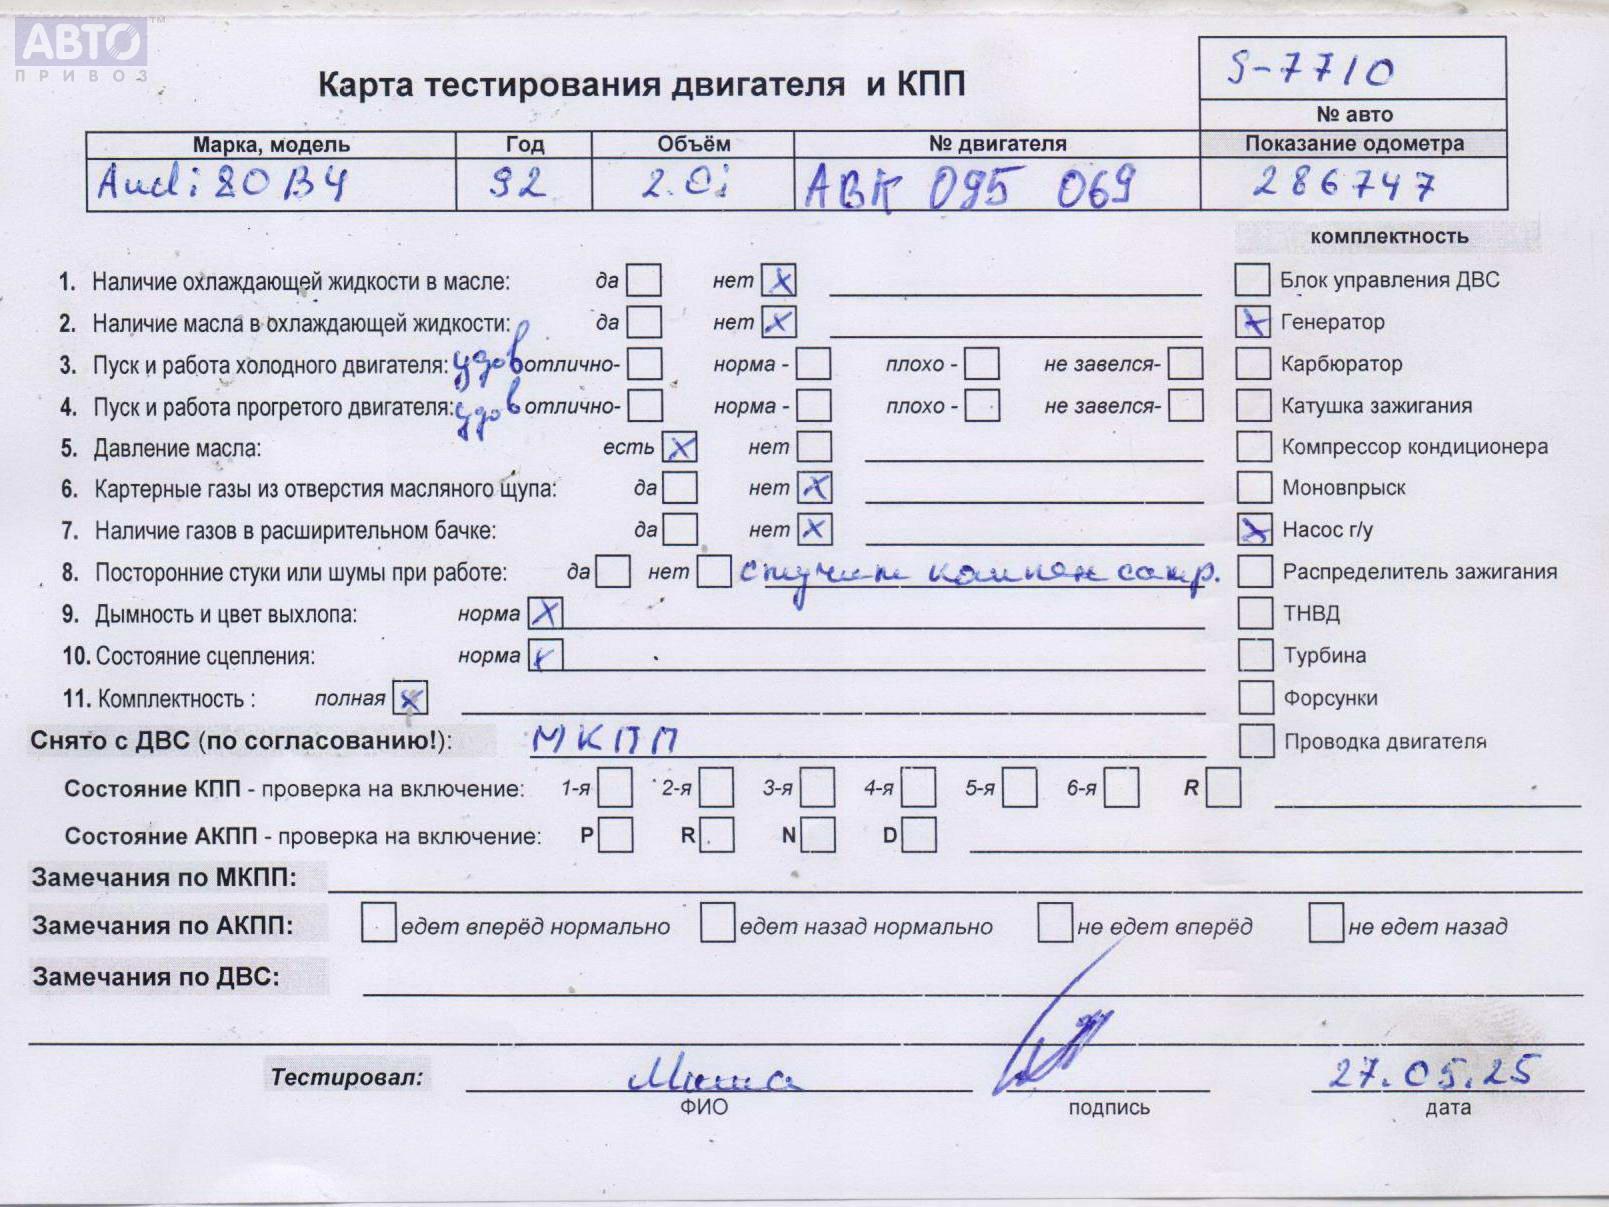 АВТО™
ПРИВОЗ
Карта тестирования двигателя и КПП
S-7710
№ авто
Марка, модель Год Объём № двигателя Показание одометра
Audi 80 B4 92 2.0i ABK 095 069 286747
комплектность
1. Наличие охлаждающей жидкости в масле: да нет X
Блок управления ДВС
2. Наличие масла в охлаждающей жидкости: да нет X
X Генератор
3. Пуск и работа холодного двигателя: удов отлично- норма - плохо - не завелся-
Карбюратор
4. Пуск и работа прогретого двигателя: удов отлично- норма - плохо - не завелся-
Катушка зажигания
5. Давление масла: есть X нет
Компрессор кондиционера
6. Картерные газы из отверстия масляного щупа: да нет X
Моновпрыск
7. Наличие газов в расширительном бачке: да нет X
X Насос г/у
8. Посторонние стуки или шумы при работе: да нет стучит компенсатр.
Распределитель зажигания
9. Дымность и цвет выхлопа: норма X
ТНВД
10. Состояние сцепления: норма X
Турбина
11. Комплектность : полная X
Форсунки
Снято с ДВС (по согласованию!): МКПП
Проводка двигателя
Состояние КПП - проверка на включение: 1-я 2-я 3-я 4-я 5-я 6-я R
Состояние АКПП - проверка на включение: P R N D
Замечания по МКПП:
Замечания по АКПП: едет вперёд нормально едет назад нормально не едет вперёд не едет назад
Замечания по ДВС:
Тестировал: Миша 27.05.25
ФИО подпись дата